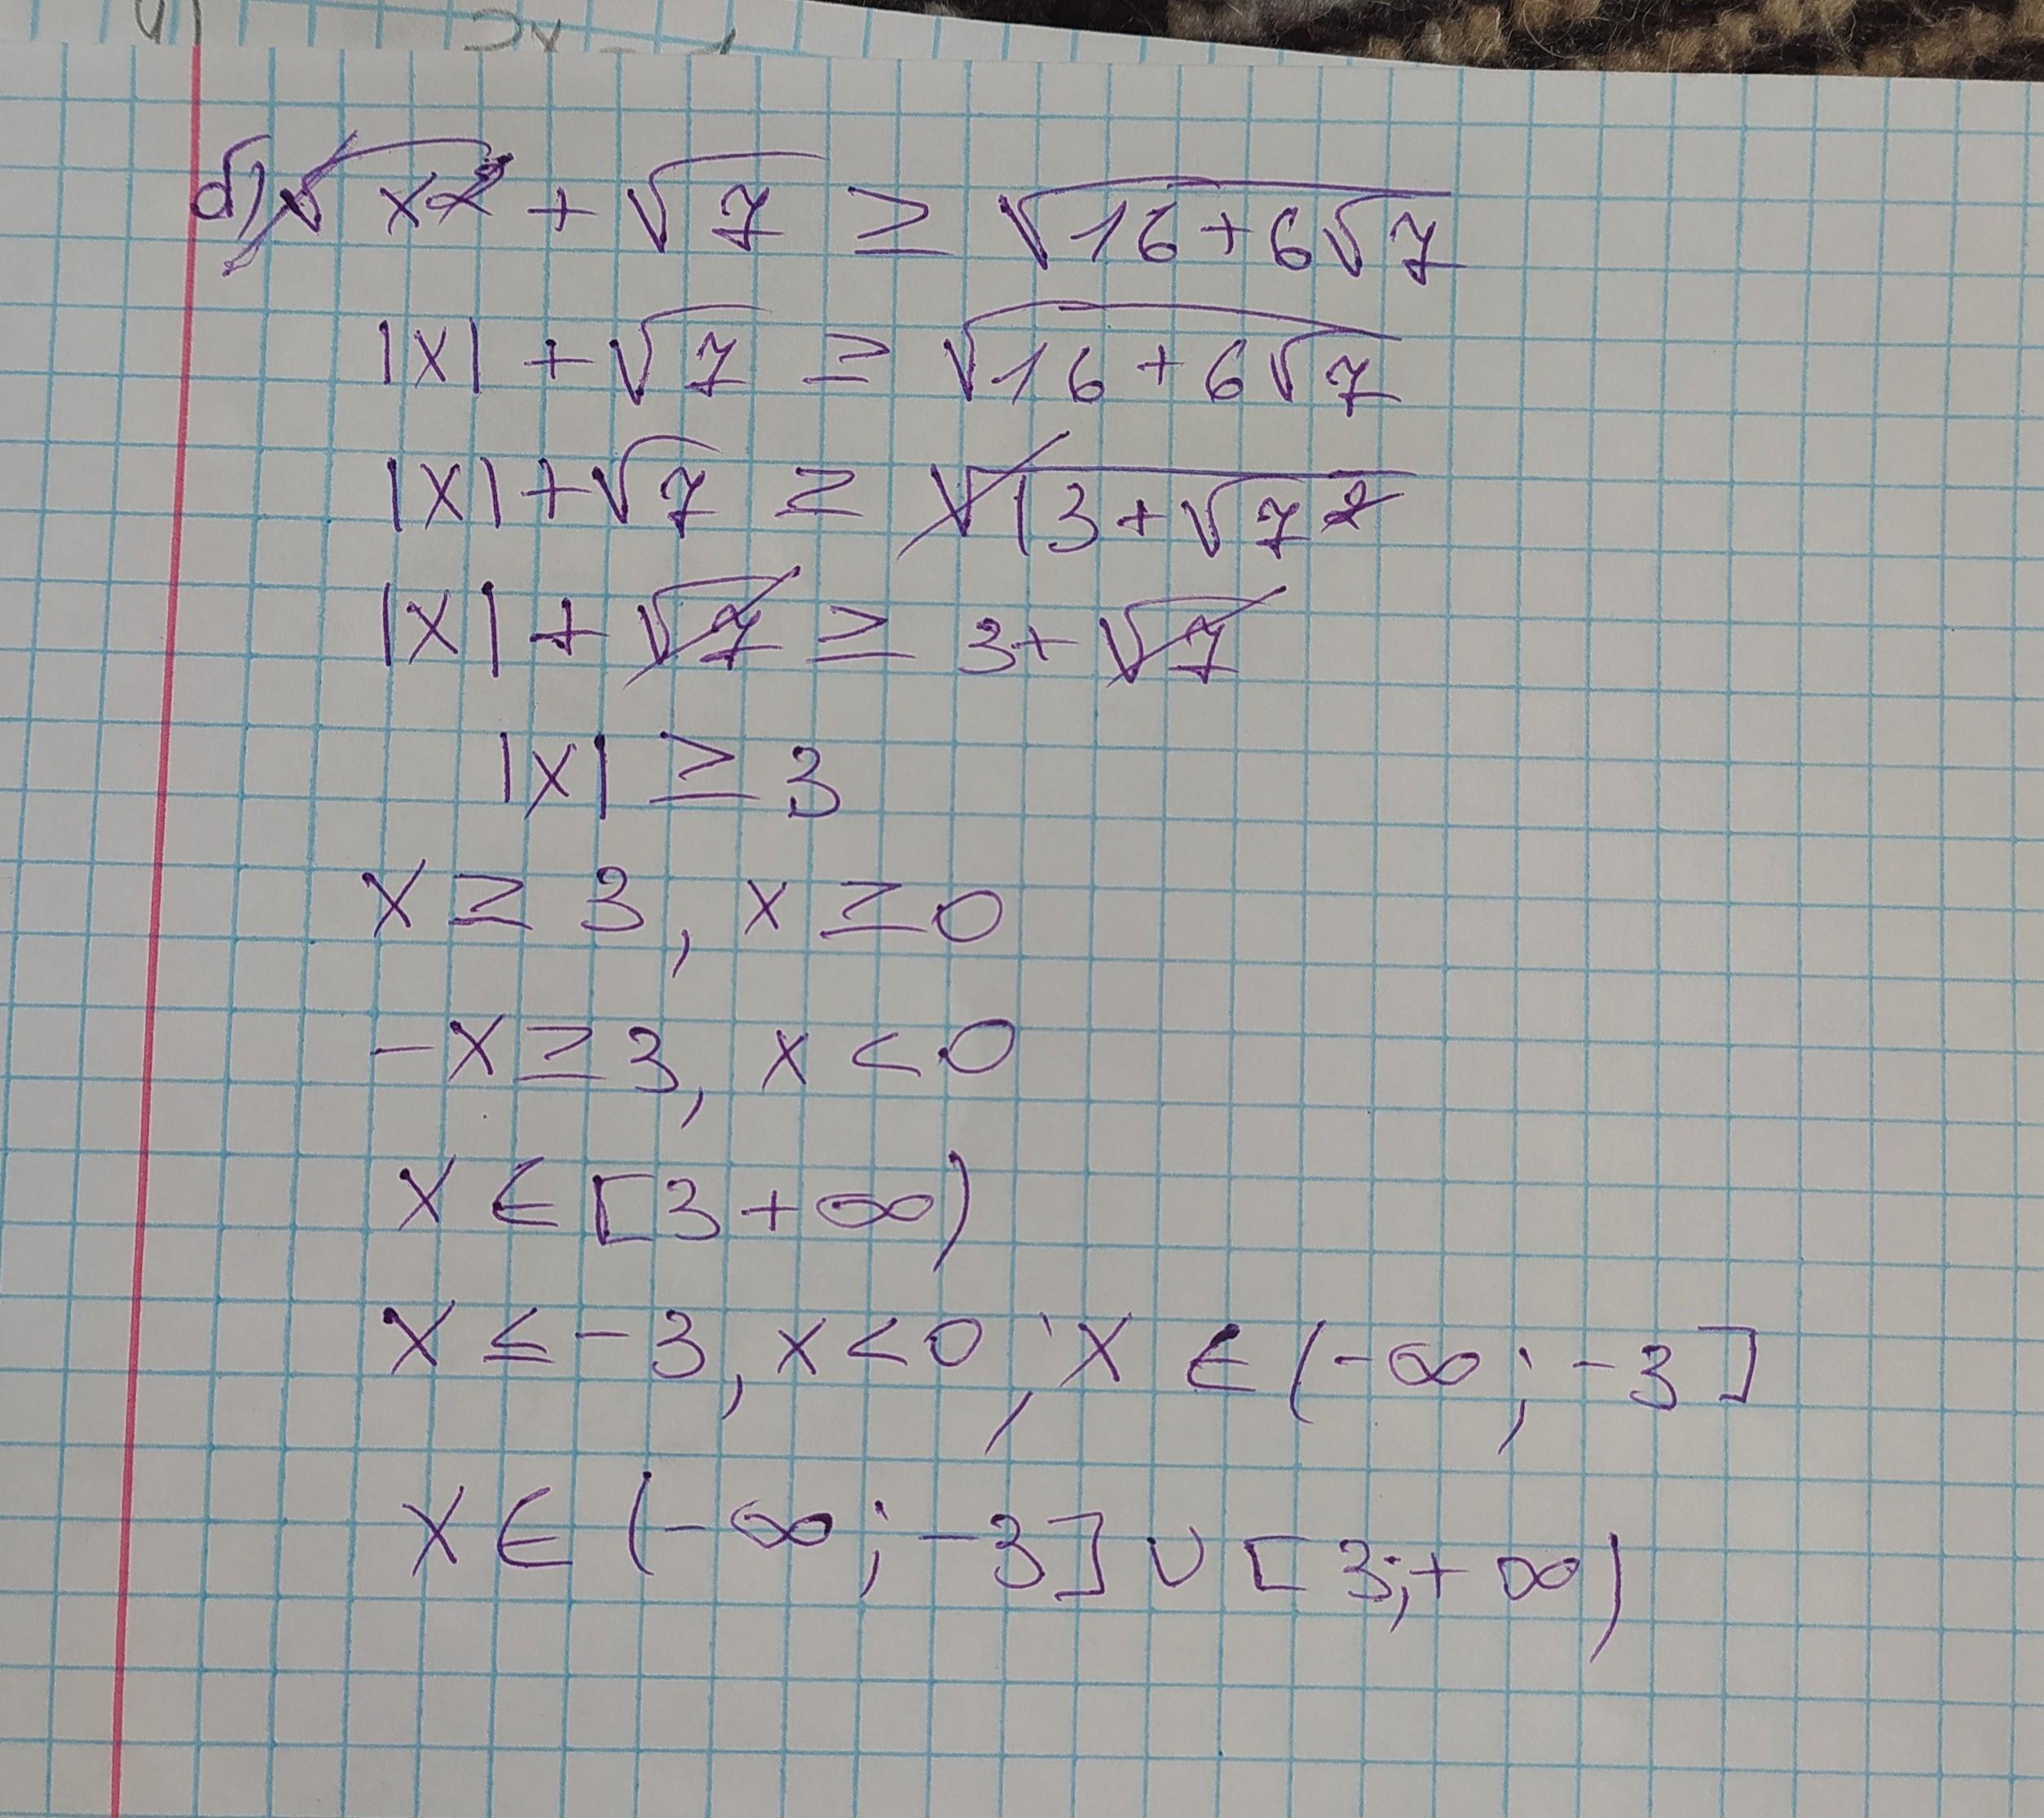 б) √x² + √7 ≥ √16+6√7
|x| + √7 ≥ √16+6√7
|x| + √7 ≥ √(3+√7²
|x| + √7 ≥ 3+√7
|x| ≥ 3
x ≥ 3, x ≥ 0
-x ≥ 3, x < 0
x ∈ [3 + ∞)
x ≤ -3, x < 0, x ∈ (-∞; -3]
x ∈ (-∞; -3] ∪ [3; +∞)